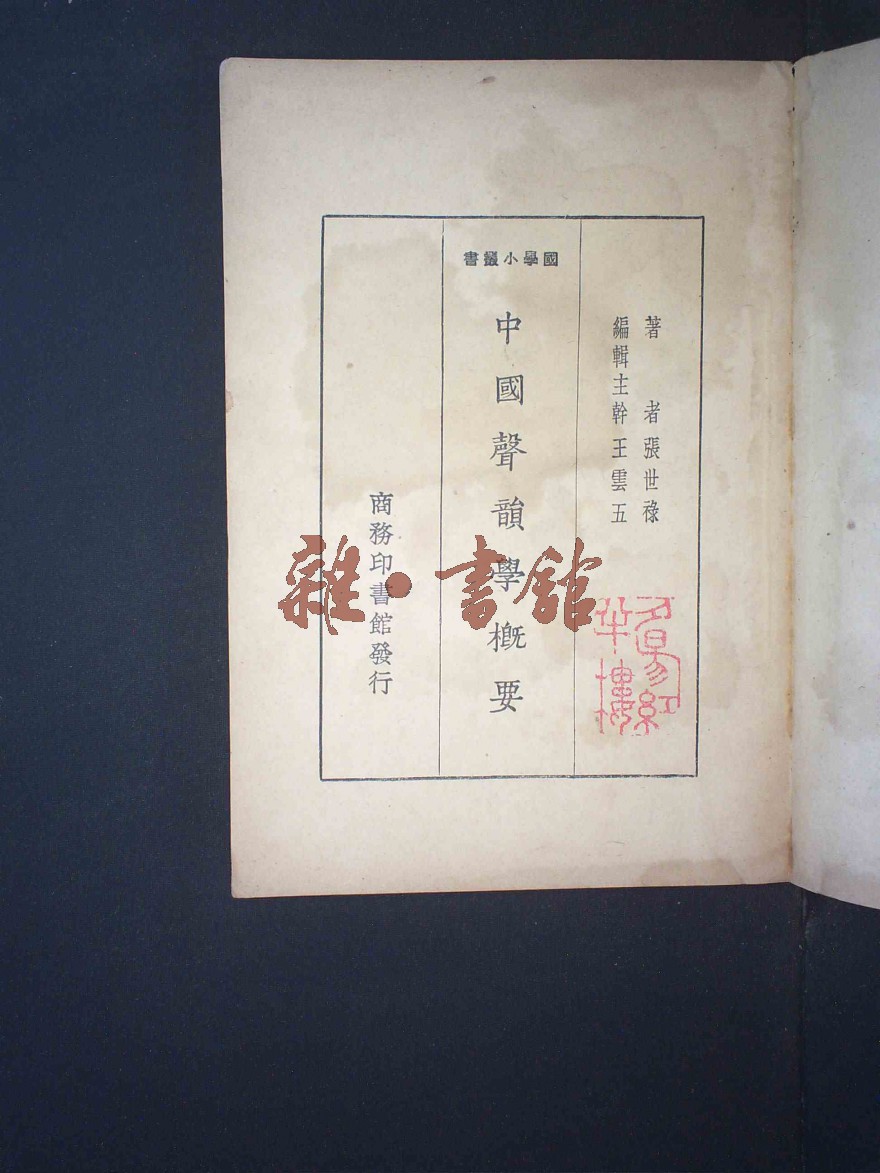 國學小叢書
著者張世祿
編輯主幹王雲五
中國聲韻學概要
商務印書館發行
雜·書館